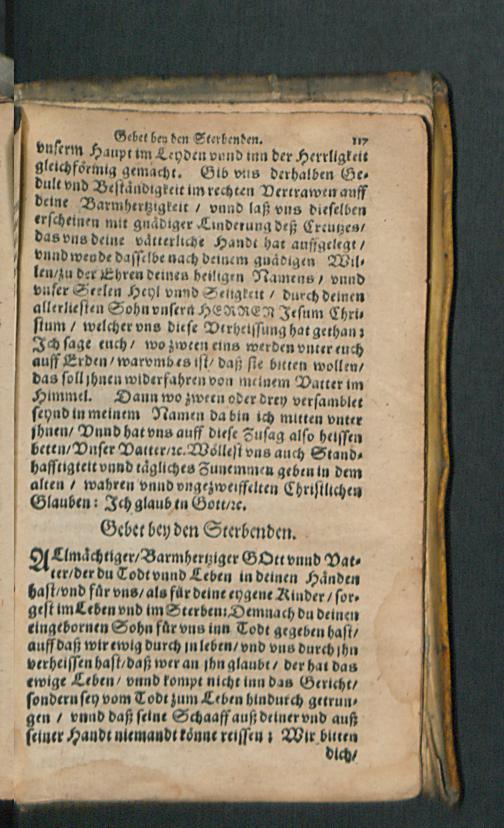 Gebet bey den Sterbenden. 117
vnserm Haupt im Leyden vnnd inn der Herrligkeit
gleichförmig gemacht. Gib vns derhalben Ge-
dult vnd Beständigkeit im rechten Vertrawen auff
deine Barmhertzigkeit / vnnd laß vns dieselben
erscheinen mit gnädiger Linderung deß Creutzes/
das vns deine vätterliche Handt hat auffgelegt /
vnnd wende dasselbe nach deinem gnädigen Wil-
len/zu der Ehren deines heiligen Namens / vnnd
vnser Seelen Heyl vnnd Seligkeit / durch deinen
allerliesten Sohn vnsern HERREN Jesum Chri-
stum / welcher vns diese Verheissung hat gethan:
Ich sage euch / wo zween eins werden vnter euch
auff Erden/ warvmb es ist/ daß sie bitten wollen/
das soll jhnen widerfahren von meinem Vatter im
Himmel. Dann wo zween oder drey versamblet
seynd in meinem Namen da bin ich mitten vnter
jhnen/ Vnnd hat vns auff diese Zusag also heissen
beten/Vnser Vatter/ꝛc. Wöllest vns auch Stand-
hafftigkeit vnnd tägliches Zunemmen geben in dem
alten / wahren vnnd vngezweiffelten Christlichen
Glauben: Ich glaub in Gott/ꝛc.
Gebet bey den Sterbenden.
ALlmächtiger/Barmhertziger GOtt vnnd Vat-
ter/der du Todt vnnd Leben in deinen Händen
hast/vnd für vns/ als für deine eygene Kinder / sor-
gest im Leben vnd im Sterben: Demnach du deinen
eingebornen Sohn für vns inn Todt gegeben hast/
auff daß wir ewig durch jn leben/ vnd vns durch jhn
verheissen hast/ daß wer an jhn glaubt / der hat das
ewige Leben/ vnnd kompt nicht inn das Gericht/
sondern sey vom Todt zum Leben hindurch getrun-
gen / vnnd daß seine Schaaff auß deiner vnd auß
seiner Handt niemandt könne reissen: Wir bitten
dich/